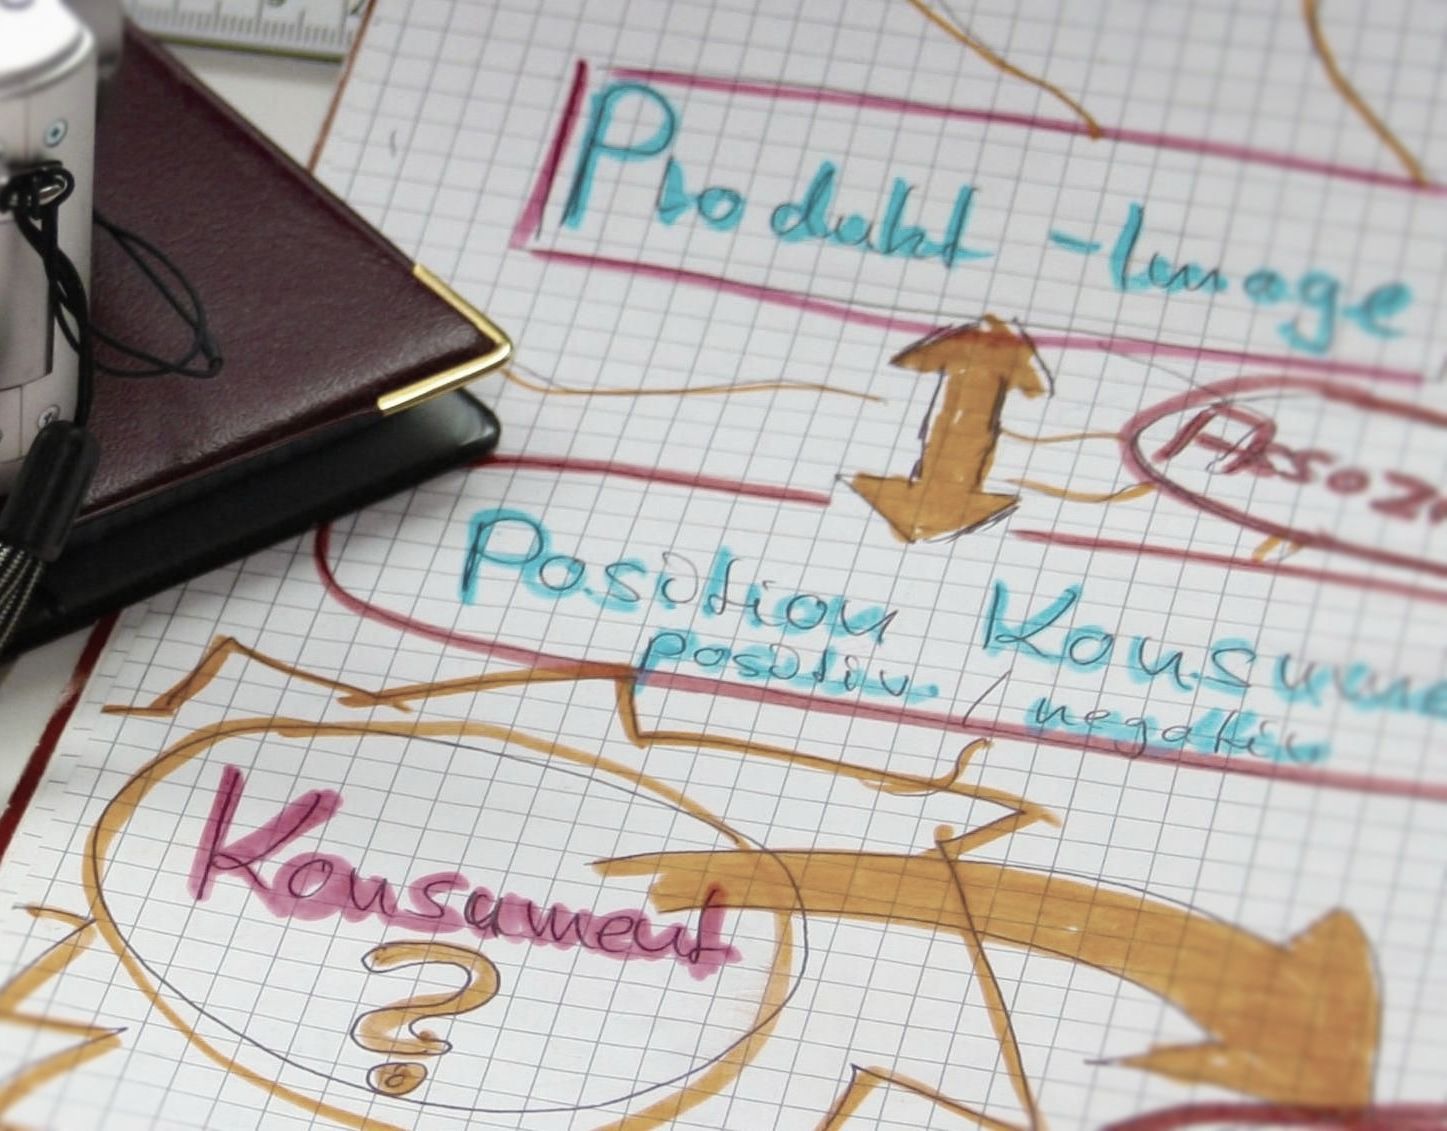 Produkt-Image
Assozi
Position Konsume
positiv / negativ
Konsument
?